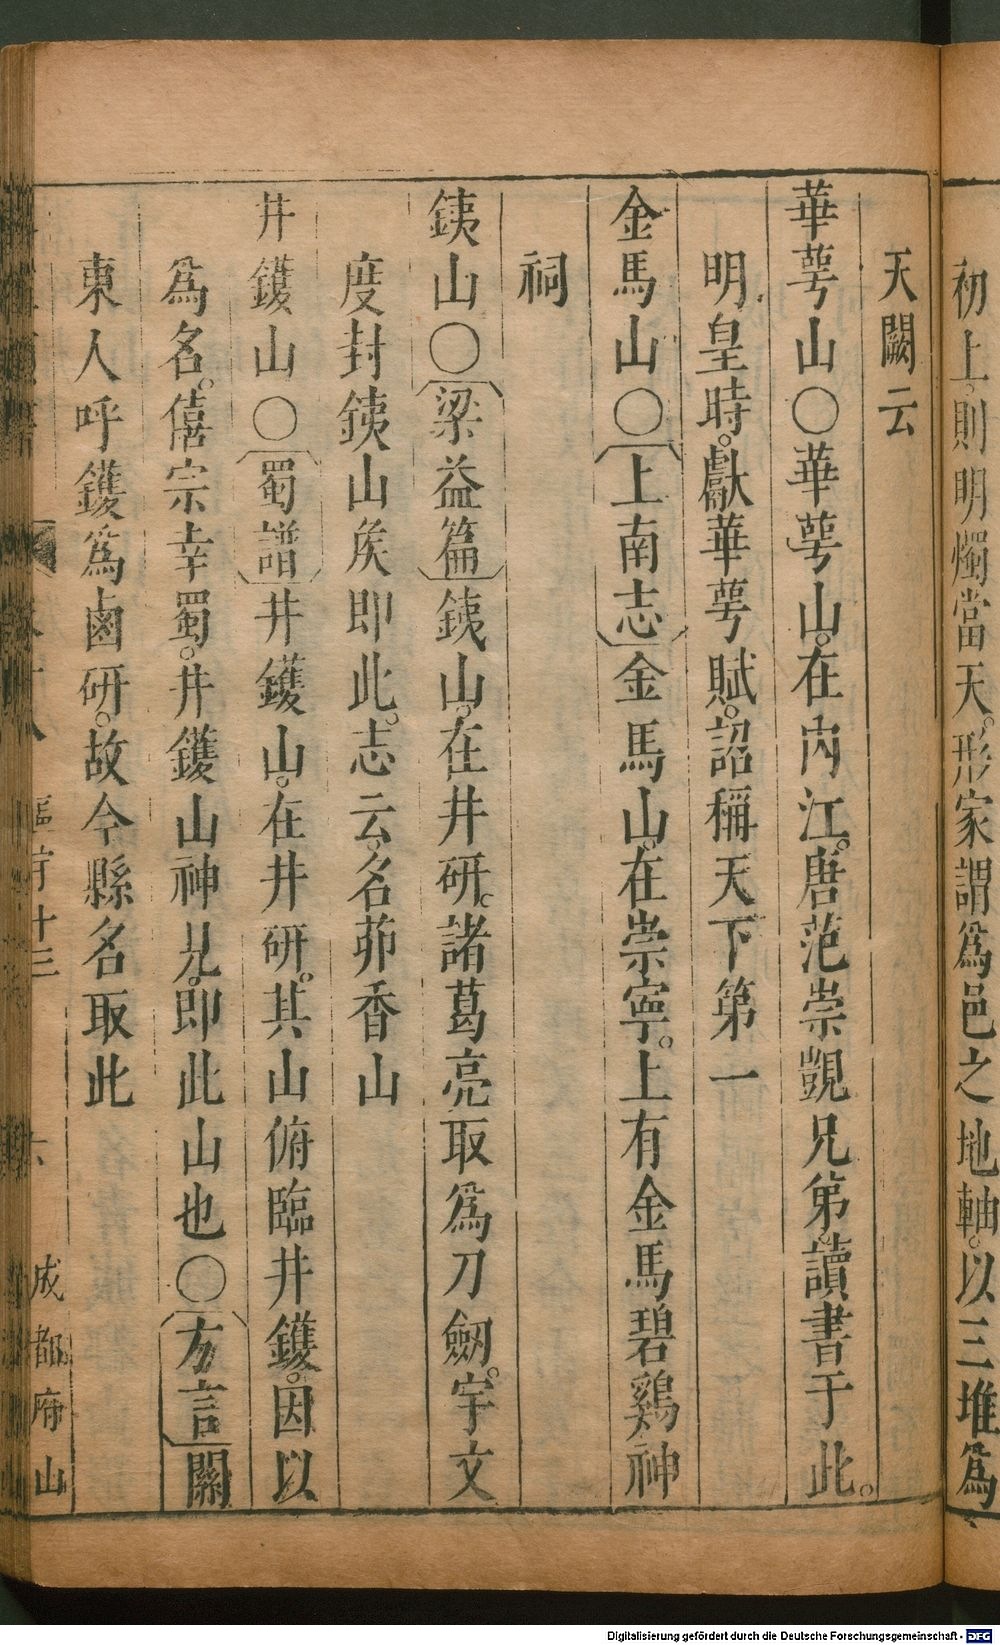 初上。則明燭當天。形家謂爲邑之地軸。以三堆爲
天闕云
華萼山〇華萼山。在內江。唐范崇凱兄弟。讀書于此。
明皇時。獻華萼賦。詔稱天下第一
金馬山〇〔上南志〕金馬山。在崇寧。上有金馬碧鷄神
祠
銕山〇〔梁益篇〕銕山。在井研。諸葛亮取爲刀劒。宇文
度封銕山矦即此。志云。名茆香山
井鑊山〇〔蜀譜〕井鑊山。在井研。其山俯臨井鑊。因以
爲名。僖宗幸蜀。井鑊山神見。即此山也〇〔方言〕關
東人呼鑊爲鹵研。故今縣名取此
成都府山
Digitalisierung gefördert durch die Deutsche Forschungsgemeinschaft - DFG